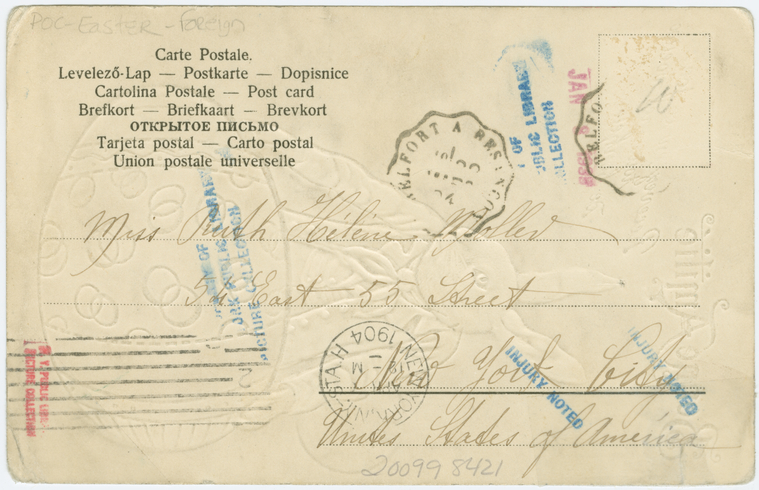 POC-Easter-Foreign
Carte Postale.
Levelező-Lap — Postkarte — Dopisnice
Cartolina Postale — Post card
Brefkort — Briefkaart — Brevkort
ОТКРЫТОЕ ПИСЬМО
Tarjeta postal — Carto postal
Union postale universelle
BELFORT A BESANCON
OF
PUBLIC LIBRARY
COLLECTION
JAN
1938
BELFO
Miss Ruth Hélène
54 East 55 Street
New York City
United States of America
OF
PUBLIC LIBRARY
PICTURE COLLECTION
NEW YORK
STA. H
1904
INJURY NOTED
INJURY NOTED
N. Y. PUBLIC LIBRARY
PICTURE COLLECTION
200998421